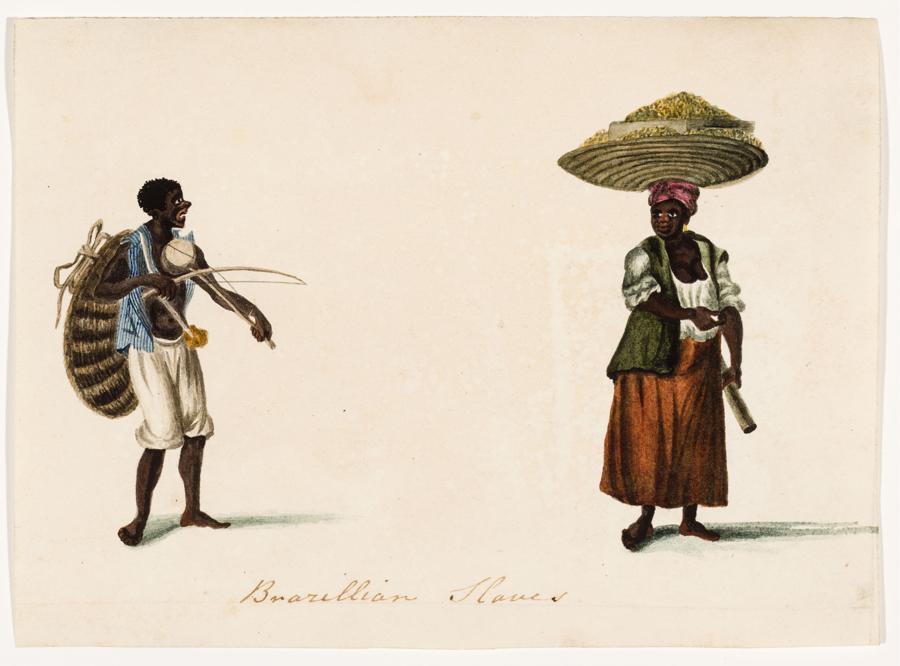 Brazillian Slaves